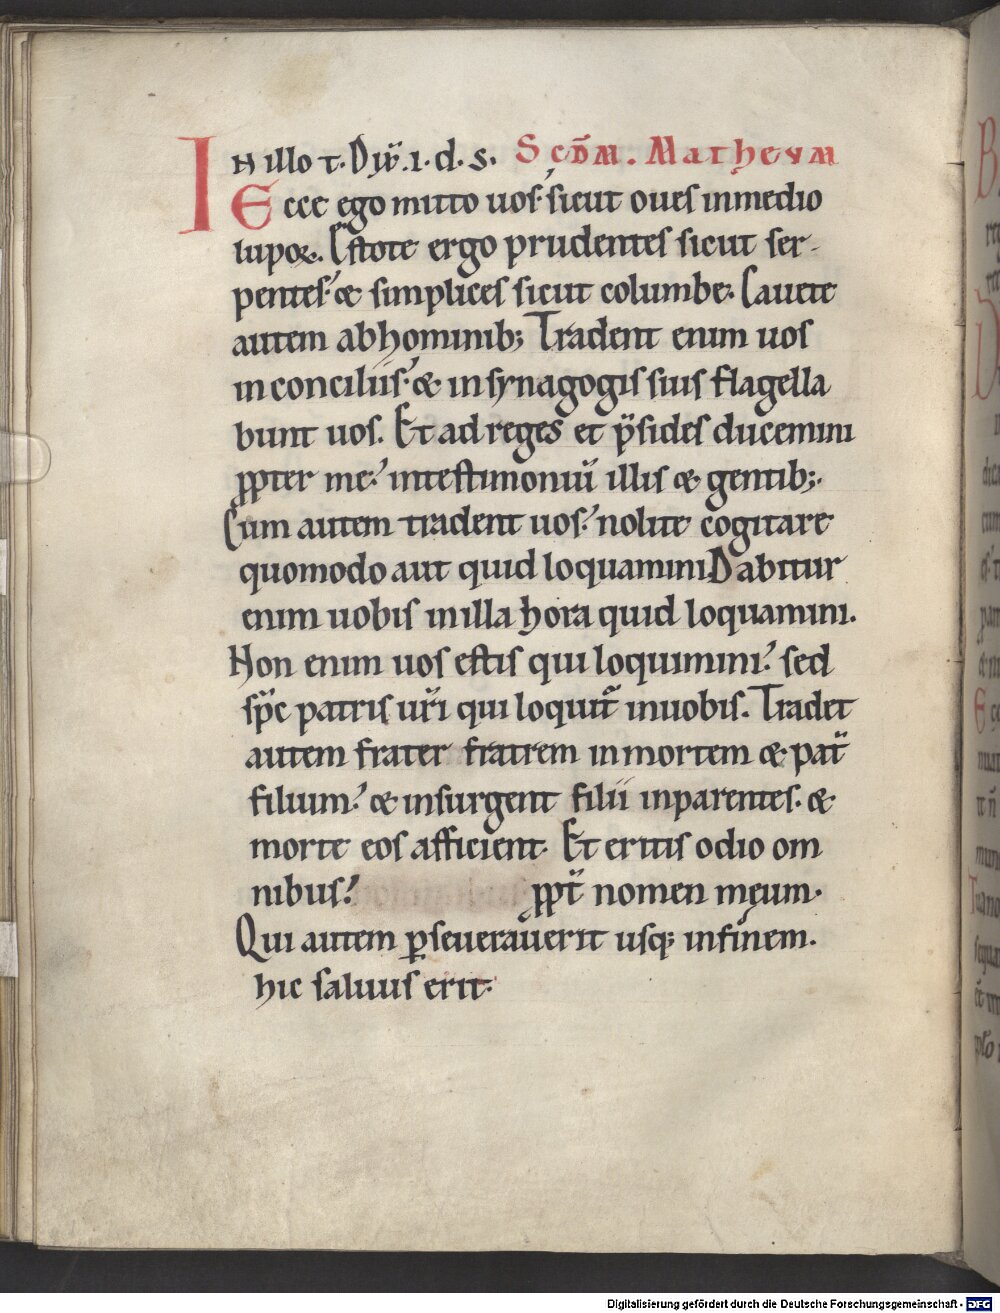 IN illo t. Dix̄. i. d. s. Scd̄m. Matheum
Ecce ego mitto uos. sicut oues inmedio
lupoꝝ. Estote ergo prudentes sicut ser-
pentes. & simplices sicut columbe. Cauete
autem abhominib; Tradent enim uos
inconciliis. & insynagogis suis flagella
bunt uos. Et ad reges et p̄sides ducemini
ꝓpter me. intestimoniū illis & gentib;.
Cum autem tradent uos. nolite cogitare
quomodo aut quid loquamini Dabitur
enim uobis inilla hora quid loquamini.
Non enim uos estis qui loquimini. sed
sp̄c patris ur̄i qui loquit̄ inuobis. Tradet
autem frater fratrem inmortem & pat̄
filium. & insurgent filii inparentes. &
morte eos afficient. Et eritis odio om
nibus. ꝓpt̄ nomen meum.
Qui autem ꝑseuerauerit usq; infinem.
hic saluus erit.
Digitalisierung gefördert durch die Deutsche Forschungsgemeinschaft - DFG